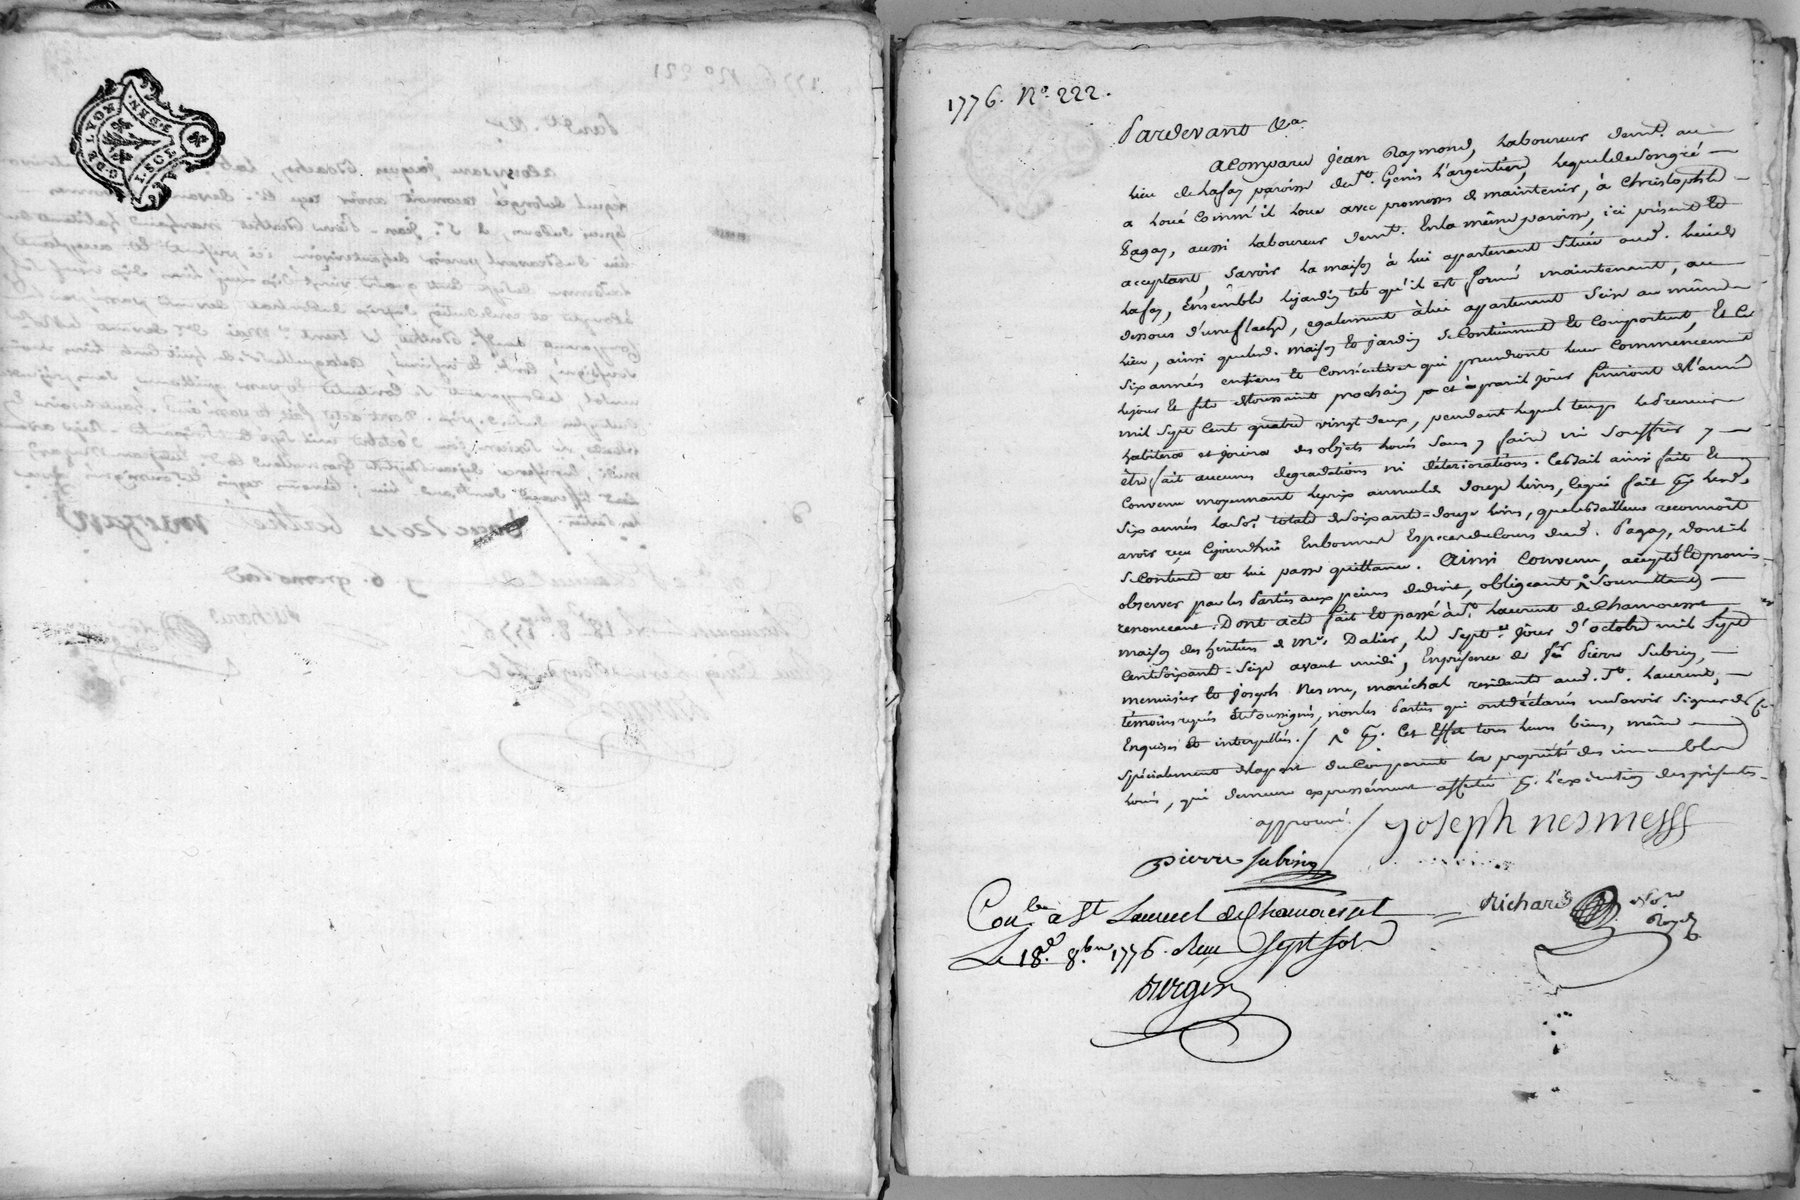 G. DE LYON
I. SOL
8. DEN.
1776. N.° 222.
Pardevant &a.
a Comparu Jean Raymond, Laboureur demt. au
lieu de Lafay paroisse de St. Genis L'argentiere, Lequel de Son gré
a Loué Comm'il Loue avec promesses de maintenir, à Christophle
Pagay, aussi Laboureur demt. En la même paroisse, ici présent Et
acceptant, Savoir La maison à Lui apartenant Située aud. Lieu de
Lafay, Ensemble Le jardin tel qu'il est formé maintenant, au
dessous d'une flache, egalement à lui appartenant Scise au même
Lieu, ainsi que lesd. maison Et jardin Se Contiennent Et Comportent, Et Ce
Six années entieres Et Consécutives qui prendront Leur Commencement
Le jour Et fete Toussaint prochain et à pareil jour finiront de l'année
mil Sept Cent quatre vingt deux, pendant Lequel temps Le Preneur
habitera et jouira des objets Loués Sans y faire ni Souffrir y
être fait aucunes degradations ni déteriorations. Ce Bail ainsi fait Et
Convenu moyennant Le prix annuel de douze Livres, Ce qui fait pr. Lesd.
Six années La Some. totale de Soixante-douze Livres, que Le Bailleur reconnoit
avoir reçu Cejourd'hui En bonnes Especes de Cours dud. Pagay, dont il
Se Contente et lui passe quittance. Ainsi Convenu, accepté Et promis
observer par Les Parties aux peines de droit, obligeant Soumettant,
renoncant. Dont acte fait Et passé à St. Laurent de Chamousset
maison des heritiers de Mr. Dalier, Le Sept.e jour d'octobre mil Sept
Cent Soixante-Seize avant midi, En présence de Sr. Pierre Subrin,
menuisier Et Joseph Nesme, maréchal residants aud. St. Laurent,
témoins requis Et Soussignés, non les Parties qui ont déclarés ne Savoir Signer de Ce
Enquises Et interpellées. / pr. Cet Effet tous Leurs biens, même
Spécialement de la part du Comparant La propriété des immeubles
Loués, qui demeure expressément affectée pr. L'exécution des présentes.
approuvé /
Joseph nesme
pierre subrin
Richard Nore. Royal
Conlé a St Laurent de Chamousset
Le 18.e 8.bre 1776. Reçu Sept Sols